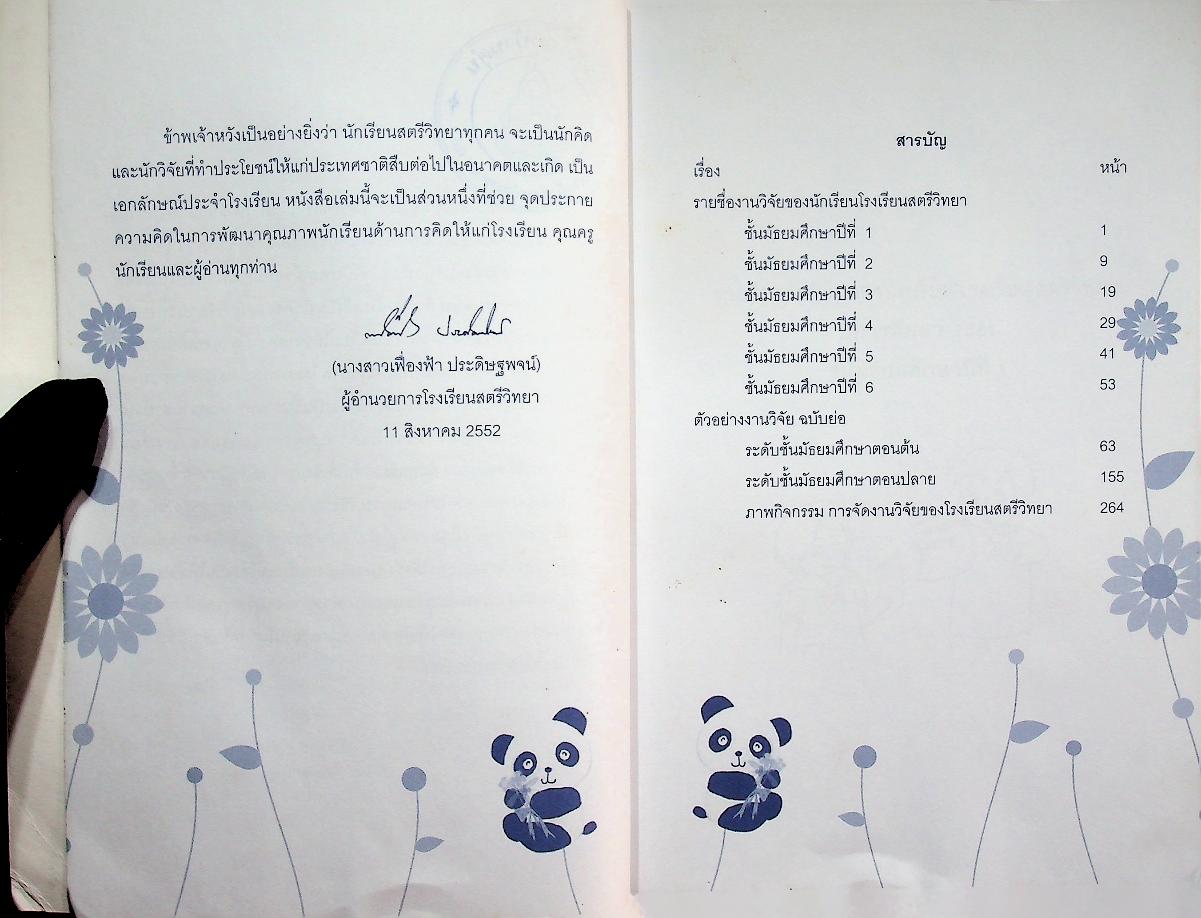 ข้าพเจ้าหวังเป็นอย่างยิ่งว่า นักเรียนสตรีวิทยาทุกคน จะเป็นนักคิด
และนักวิจัยที่ทำประโยชน์ให้แก่ประเทศชาติสืบต่อไปในอนาคตและเกิด เป็น
เอกลักษณ์ประจำโรงเรียน หนังสือเล่มนี้จะเป็นส่วนหนึ่งที่ช่วย จุดประกาย
ความคิดในการพัฒนาคุณภาพนักเรียนด้านการคิดให้แก่โรงเรียน คุณครู
นักเรียนและผู้อ่านทุกท่าน
(นางสาวเฟื่องฟ้า ประดิษฐพจน์)
ผู้อำนวยการโรงเรียนสตรีวิทยา
11 สิงหาคม 2552
สารบัญ
เรื่อง หน้า
รายชื่องานวิจัยของนักเรียนโรงเรียนสตรีวิทยา
ชั้นมัธยมศึกษาปีที่ 1 1
ชั้นมัธยมศึกษาปีที่ 2 9
ชั้นมัธยมศึกษาปีที่ 3 19
ชั้นมัธยมศึกษาปีที่ 4 29
ชั้นมัธยมศึกษาปีที่ 5 41
ชั้นมัธยมศึกษาปีที่ 6 53
ตัวอย่างงานวิจัย ฉบับย่อ
ระดับชั้นมัธยมศึกษาตอนต้น 63
ระดับชั้นมัธยมศึกษาตอนปลาย 155
ภาพกิจกรรม การจัดงานวิจัยของโรงเรียนสตรีวิทยา 264